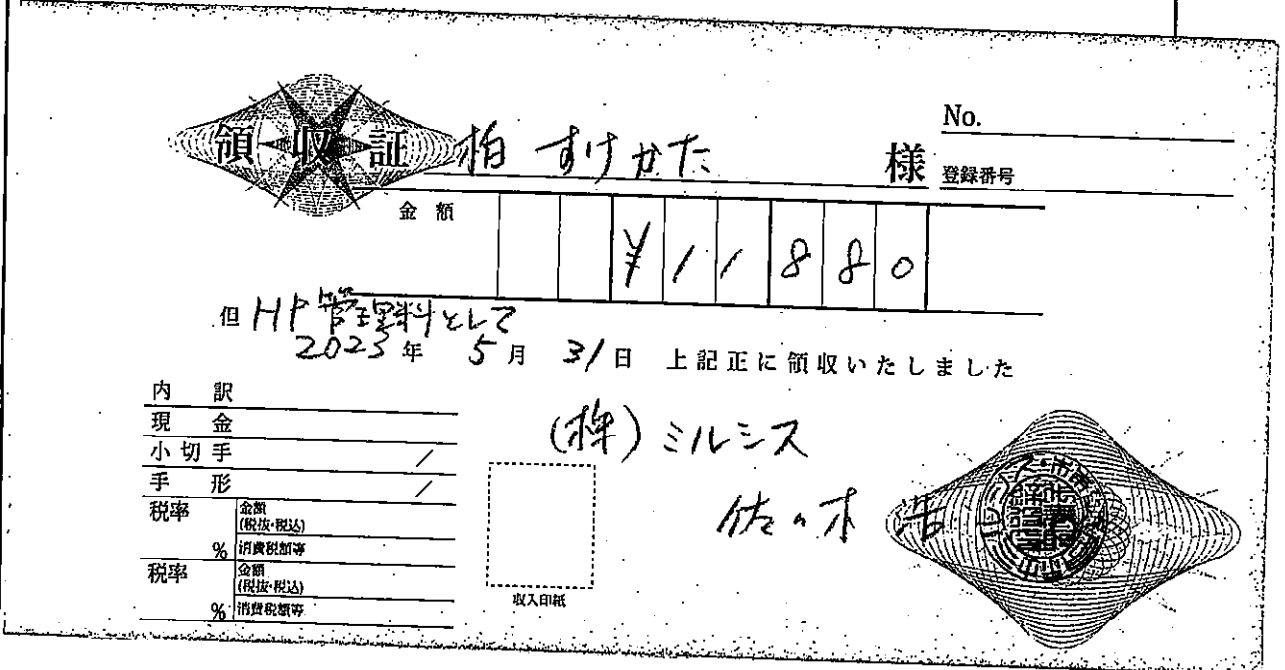 領収証 柏 すけかた 様
No.
登録番号
金額 ¥11880
但 HP管理料として
2023年 5月 31日 上記正に領収いたしました
内訳
現金
小切手 /
手形 /
税率 %
金額(税抜・税込)
消費税額等
税率 %
金額(税抜・税込)
消費税額等
収入印紙
(株)ミルシス
佐々木 浩